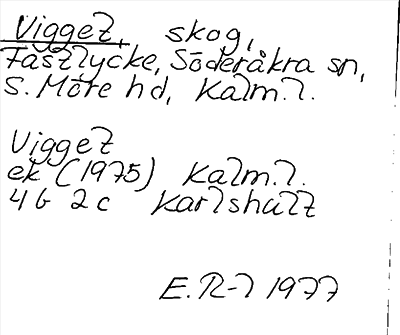 Vigget, skog,
Fastlycke, Söderåkra sn,
S. Möre hd, Kalm. l.
Vigget
ek (1975) Kalm. l.
4 G 2 c Karlshult
E. R-l 1977